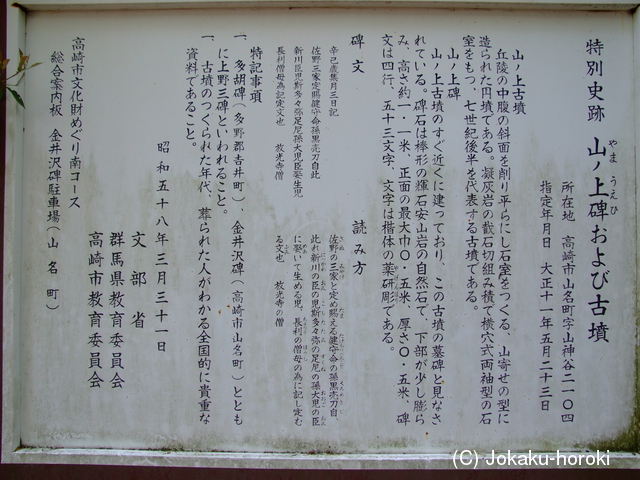 特別史跡 山ノ上碑および古墳
やま うえひ
所在地 高崎市山名町字山神谷二一〇四
指定年月日 大正十一年五月二十三日
山ノ上古墳
丘陵の中腹の斜面を削り平らにし石室をつくる、山寄せの型に
造られた円墳である。凝灰岩の截石切組み積で横穴式両袖型の石
室をもつ、七世紀後半を代表する古墳である。
山ノ上碑
山ノ上古墳のすぐ近くに建っており、この古墳の墓碑と見なさ
れている。碑石は棒形の輝石安山岩の自然石で、下部が少し膨ら
み、高さ約一・一米、正面の最大巾〇・五米、厚さ〇・五米、碑
文は四行、五十三文字、文字は楷体の薬研彫である。
碑文
辛己歳集月三日記
佐野三家定賜健守命孫黒売刀自此
新川臣児斯多々弥足尼孫大児臣娶生児
長利僧母為記定文也 放光寺僧
読み方
佐野の三家と定め賜える健守命の孫黒売刀自、
此れ新川の臣の児斯多々弥の足尼の孫大児の臣
に娶いて生める児、長利の僧母の為に記し定む
る文也 放光寺の僧
特記事項
一、多胡碑(多野郡吉井町)、金井沢碑(高崎市山名町)ととも
に上野三碑といわれること。
一、古墳のつくられた年代、葬られた人がわかる全国的に貴重な
資料であること。
昭和五十八年三月三十一日
文部省
群馬県教育委員会
高崎市教育委員会
高崎市文化財めぐり南コース
総合案内板 金井沢碑駐車場(山名町)
(C) Jokaku-horoki